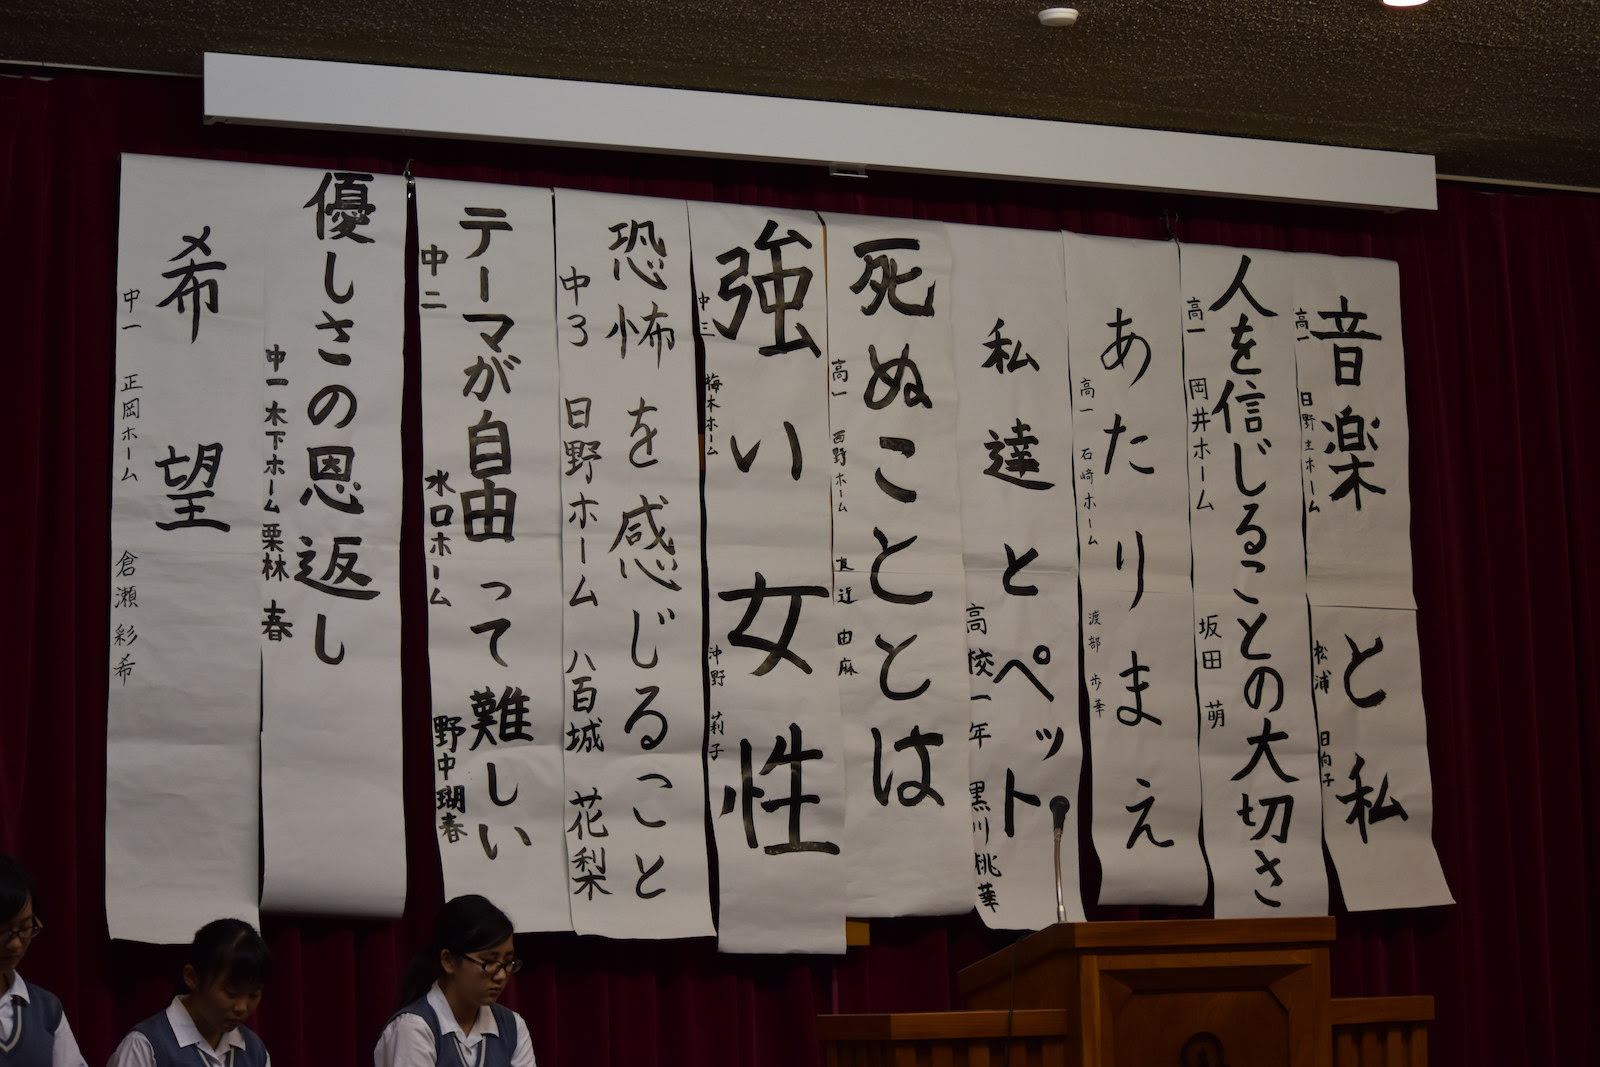 音楽と私
高一 日野土ホーム 松浦 日向子
人を信じることの大切さ
高一 岡井ホーム 坂田 萌
あたりまえ
高一 石崎ホーム 渡部 歩華
私達とペット
高校一年 黒川桃華
死ぬこととは
高一 西野ホーム 友近 由麻
強い女性
中三 梅木ホーム 沖野 莉子
恐怖を感じること
中3 日野ホーム 八百城 花梨
テーマが自由って難しい
中二 水口ホーム 野中瑚春
優しさの恩返し
中一 木下ホーム 栗林 春
希望
中一 正岡ホーム 倉瀬 彩希